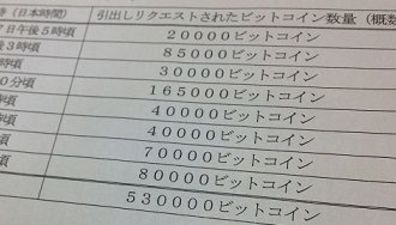 時（日本時間） 引出しリクエストされたビットコイン数量（概数
7日午後5時頃 20000ビットコイン
後3時頃 85000ビットコイン
時頃 30000ビットコイン
0分頃 165000ビットコイン
時頃 40000ビットコイン
時頃 40000ビットコイン
頃 70000ビットコイン
頃 80000ビットコイン
530000ビットコイン